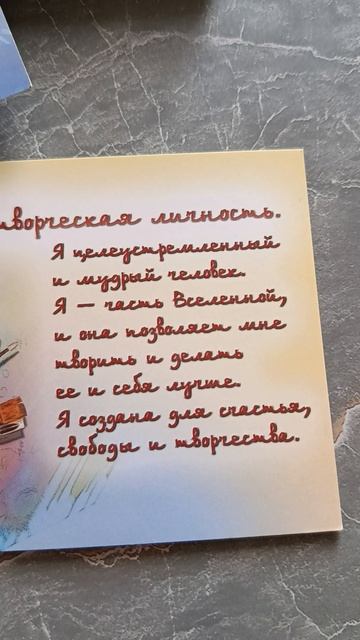 творческая личность.
Я целеустремленный
и мудрый человек.
Я — часть Вселенной,
и она позволяет мне
творить и делать
ее и себя лучше.
Я создана для счастья,
свободы и творчества.